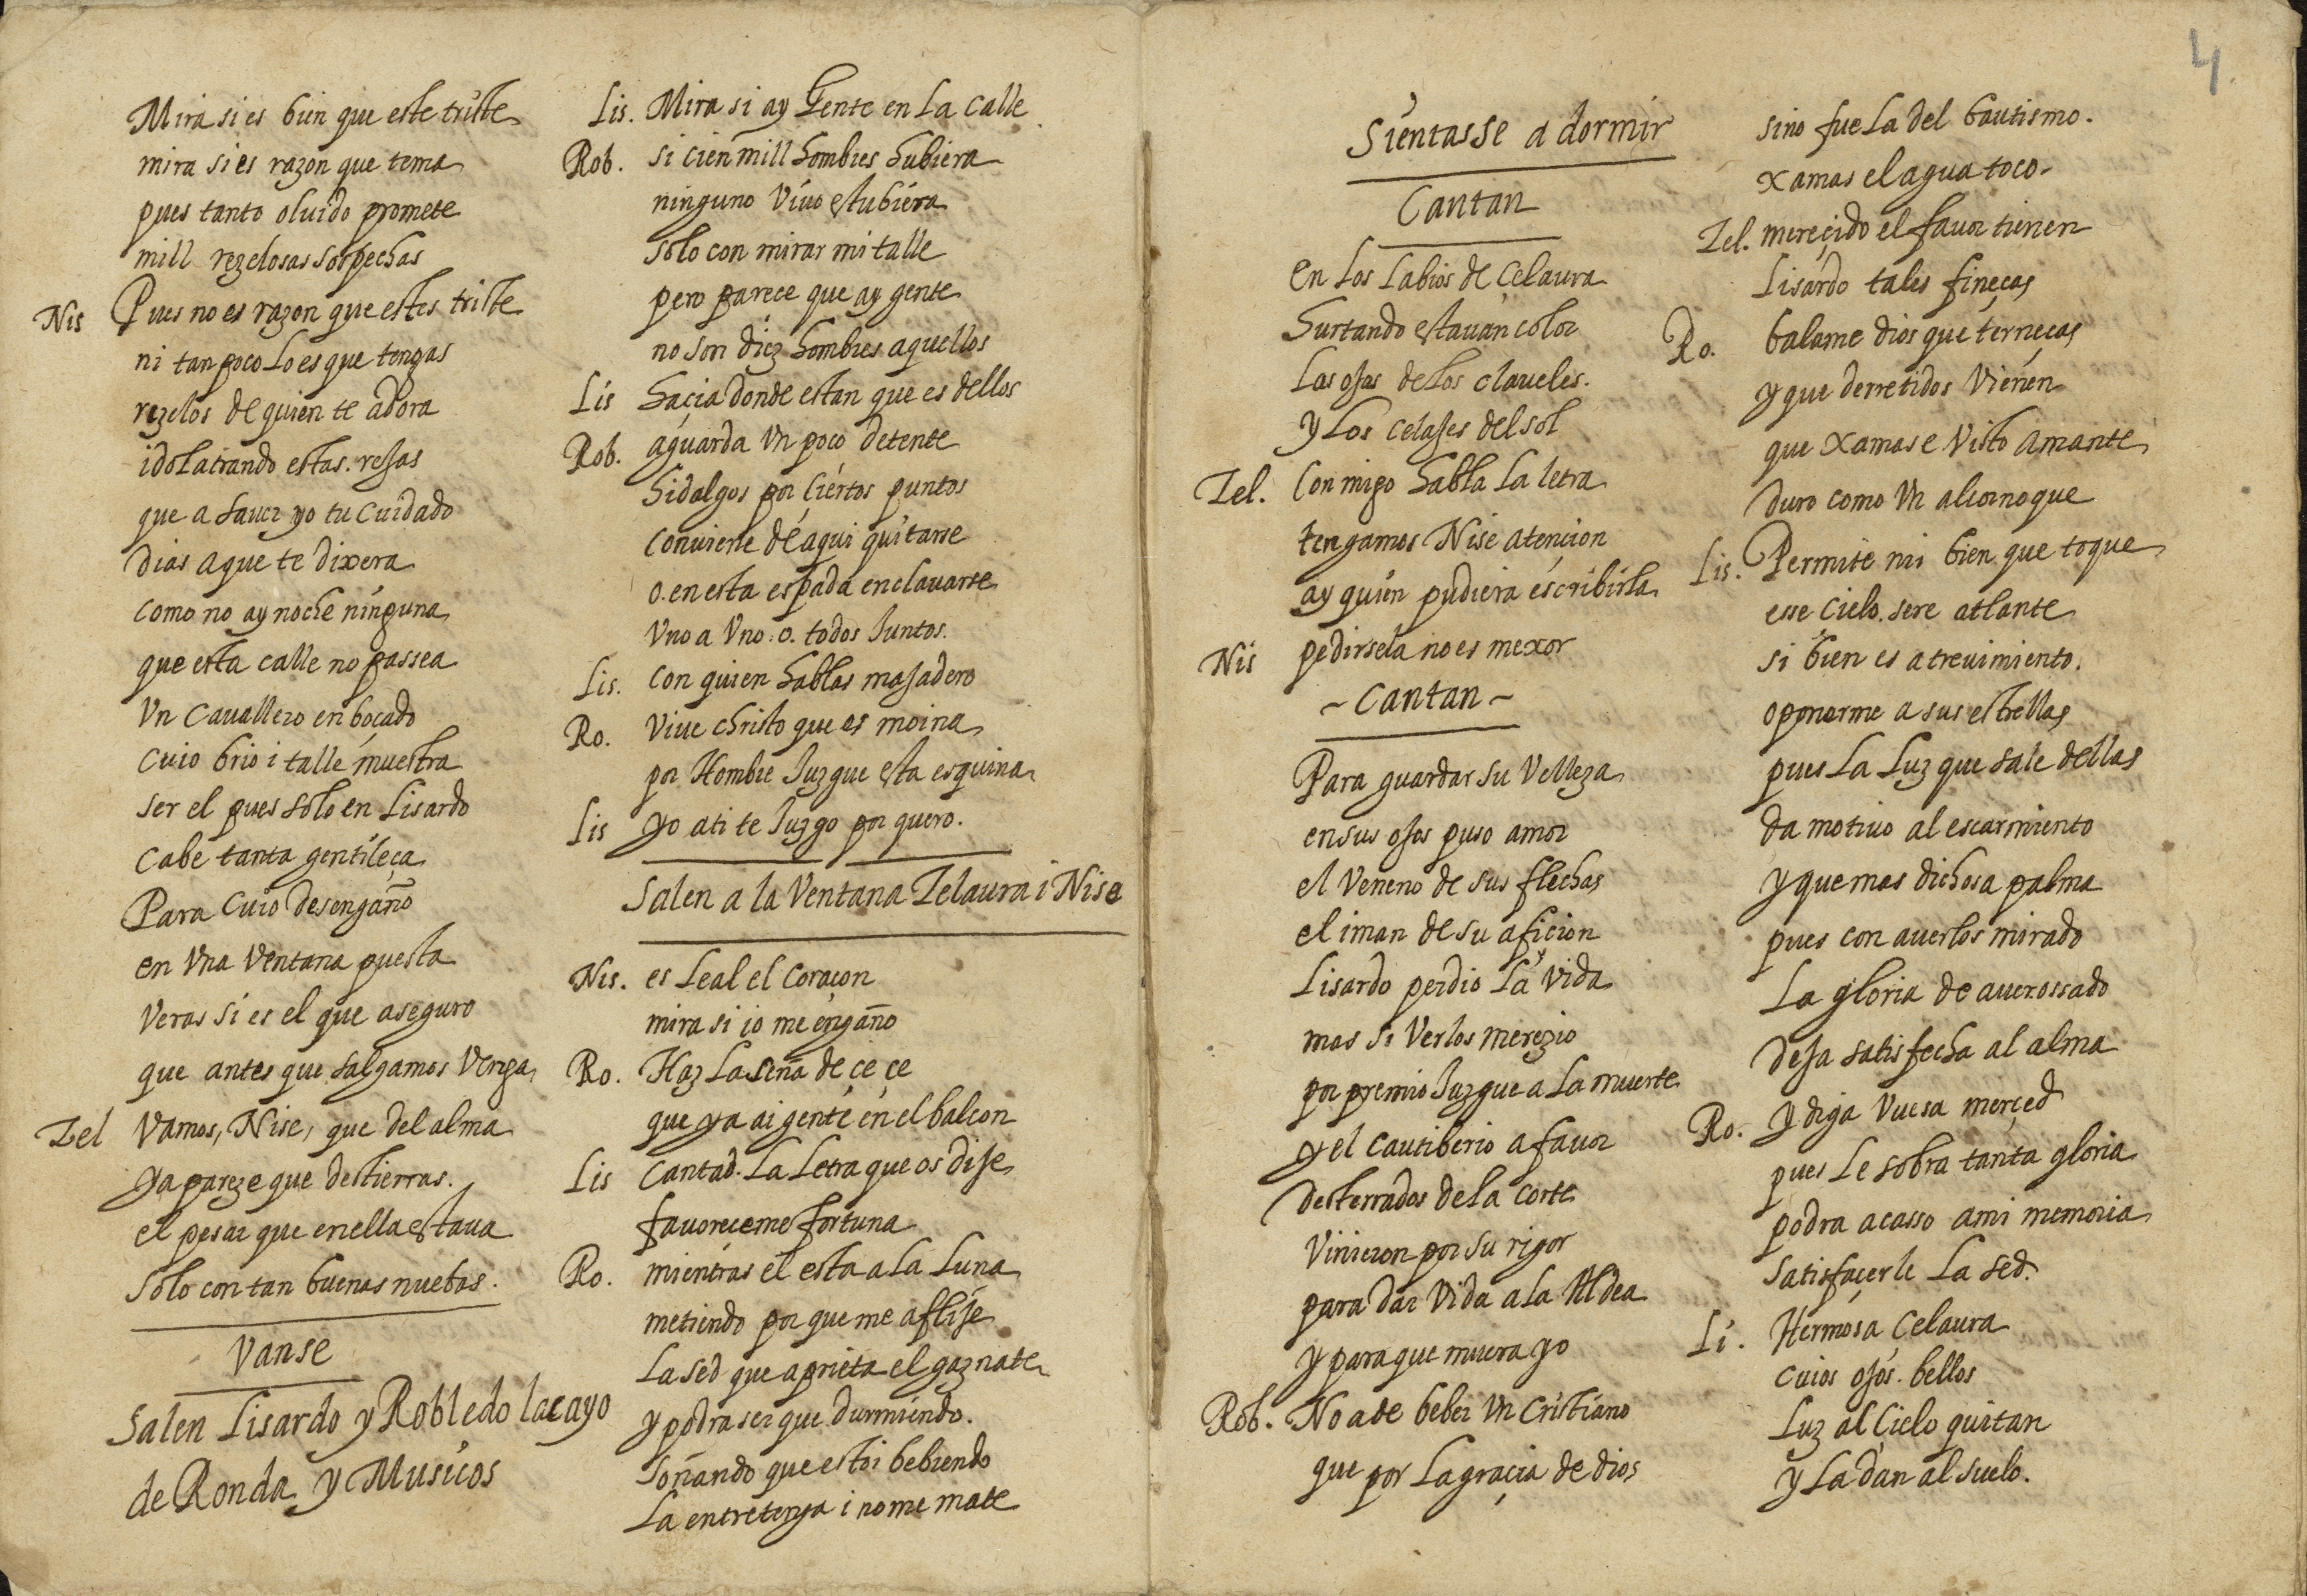 Mira si es bien que este triste
mira si es razon que tema
pues tanto oluido promete
mill rezelosas sospechas
Nis Pues no es razon que estes triste
ni tan poco lo es que tengas
rezelos de quien te adora
idolatrando estas. rejas
que a sauer yo tu cuidado
dias a que te dixera
como no ay noche ninguna
que esta calle no passea
Vn Cavallero enboçado
cuio brio i talle muestra
ser el pues solo en Lisardo
cabe tanta gentileça
Para cuio desengaño
en vna ventana puesta
veras si es el que aseguro
que antes que salgamos venga
Zel Vamos, Nise, que del alma
ya pareze que destierras.
el pesar que en ella estaua
solo con tan buenas nuebas.
Vanse
Salen Lisardo y Robledo lacayo
de Ronda y Musicos
Lis. Mira si ay Gente en la calle
Rob. si cien mill hombres hubiera
ninguno viuo estubiera
solo con mirar mi talle
pero parece que ay gente
no son diez hombres aquellos
Lis haçia donde estan que es dellos
Rob. aguarda vn poco detente
hidalgos por ciertos puntos
conuiene de aqui quitarse
o. en esta espada enclauarse
vno a vno. o. todos juntos.
Lis. con quien hablas majadero
Ro. Viue christo que es moina
por Hombre juzgue esta esquina
Lis yo a ti te juzgo por quero.
Salen a la Ventana Zelaura i Nise
Nis. es leal el coraçon
mira si io me engaño
Ro. Haz la seña de çe çe
que ya ai gente en el balcon
Lis Cantad. la letra que os dije
fauoreceme fortuna
Ro. mientras el esta a la luna
metiendo por que me aflije
la sed que aprieta el gaznate
y podra ser que durmiendo.
soñando que estoi bebiendo
la entretenga i no me mate
4
Sientasse a dormir
Cantan
en los labios de Çelaura
hurtando estauan color
las ojas de los claueles.
y los celajes del sol
Zel. Con migo habla la letra
tengamos Nise atençion
ay quien pudiera escribirla
Nis pedirsela no es mexor
~ Cantan ~
Para guardar su velleza
en sus ojos puso amor
el veneno de sus flechas
el iman de su aficion
Lisardo perdio la vida
mas si verlos merezio
por premio juzgue a la muerte
y el cautiberio a fauor
desterrados de la corte
vinieron por su rigor
para dar vida a la Aldea
y para que muera yo
Rob. No a de beber vn cristiano
que por la graçia de dios
sino fue la del bautismo.
xamas el agua toco.
Zel. mereçido el fauor tienen
Lisardo tales fineças
Ro. balame dios que terneças
y que derretidos vienen
que xamas e visto amante
duro como vn alcornoque
Lis. Permite mi bien que toque
esse cielo. sere atlante
si bien es atreuimiento.
oponerme a sus estrellas
pues la luz que sale dellas
da motiuo al escarmiento
y que mas dichosa palma
pues con auerlos mirado
la gloria de auer ossado
deja satisfecha al alma
Ro. y diga vuesa merçed
pues le sobra tanta gloria
podra acasso a mi memoria
satisfaçerle la sed.
Li. Hermosa Çelaura
cuios ojos. bellos
luz al çielo quitan
y la dan al suelo.